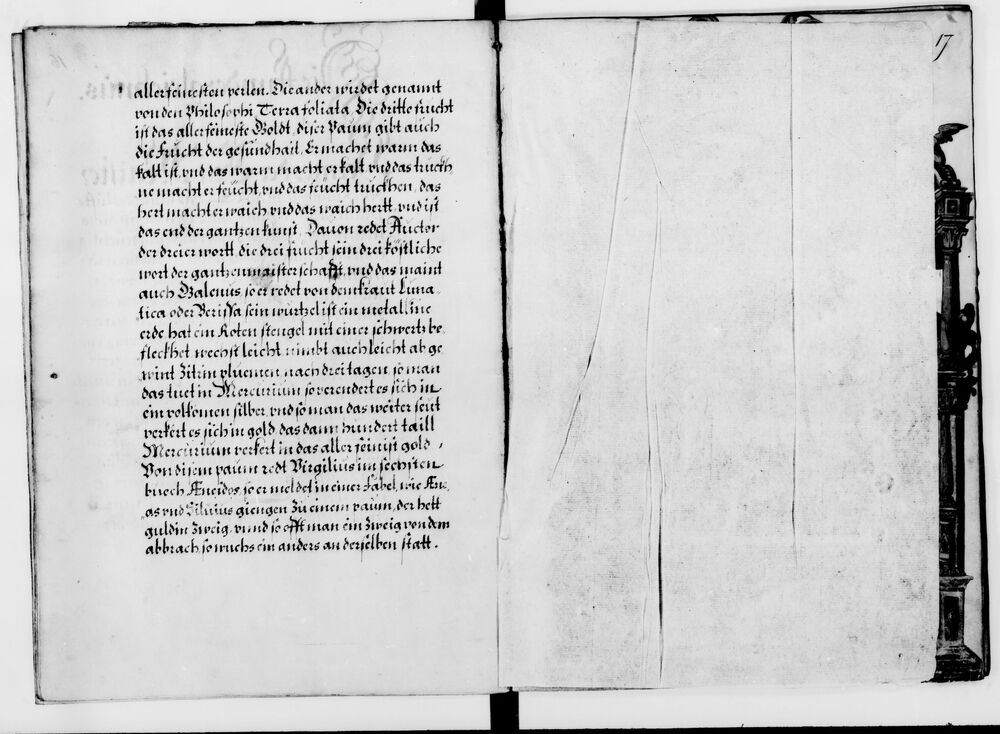 allerfeinesten perlen. Die ander wirdet genannt
von den Philosophi Terra foliata. Die dritte frucht
ist das allerfeineste Goldt, diser Paum gibt auch
die Frucht der gesundhait. Er machet warm das
kalt ist, vnd das warm macht er kalt vnd das truckh
ne macht er feücht, vnd das feücht truckhen, das
hert macht er waich vnd das waich hertt, vnd ist
das end der gantzen kunst. Dauon redet Auctor
der dreier wortt, die drei frucht sein drei köstliche
wort der gantzen maisterschafft, vnd das maint
auch Galenus, so er redet von dem kraut Luna
tica oder Berissa sein wurtzel ist ein metalline
erde, hat ein Roten stengel mit einer schwertz be
fleckhet, wechst leicht, nimbt auch leicht ab ge
wint Zitrin pluemen, nach drei tagen, so man
das tuet in Mercurium so verendert es sich in
ein volkomen silber, vnd so man das weiter seut
verkert es sich in gold, das dann hundert taill
Mercurium verkert in das aller feinist gold,
Von disem paum redt Virgilius im sechsten
buech Æneidos, so er meldet in einer Fabel, wie Æne
as vnd Siluius giengen zu einem paum, der hett
guldin Zweig, vnnd so offt man ein Zweig von dem
abbrach, so wuchs ein anders an derselben statt.
17